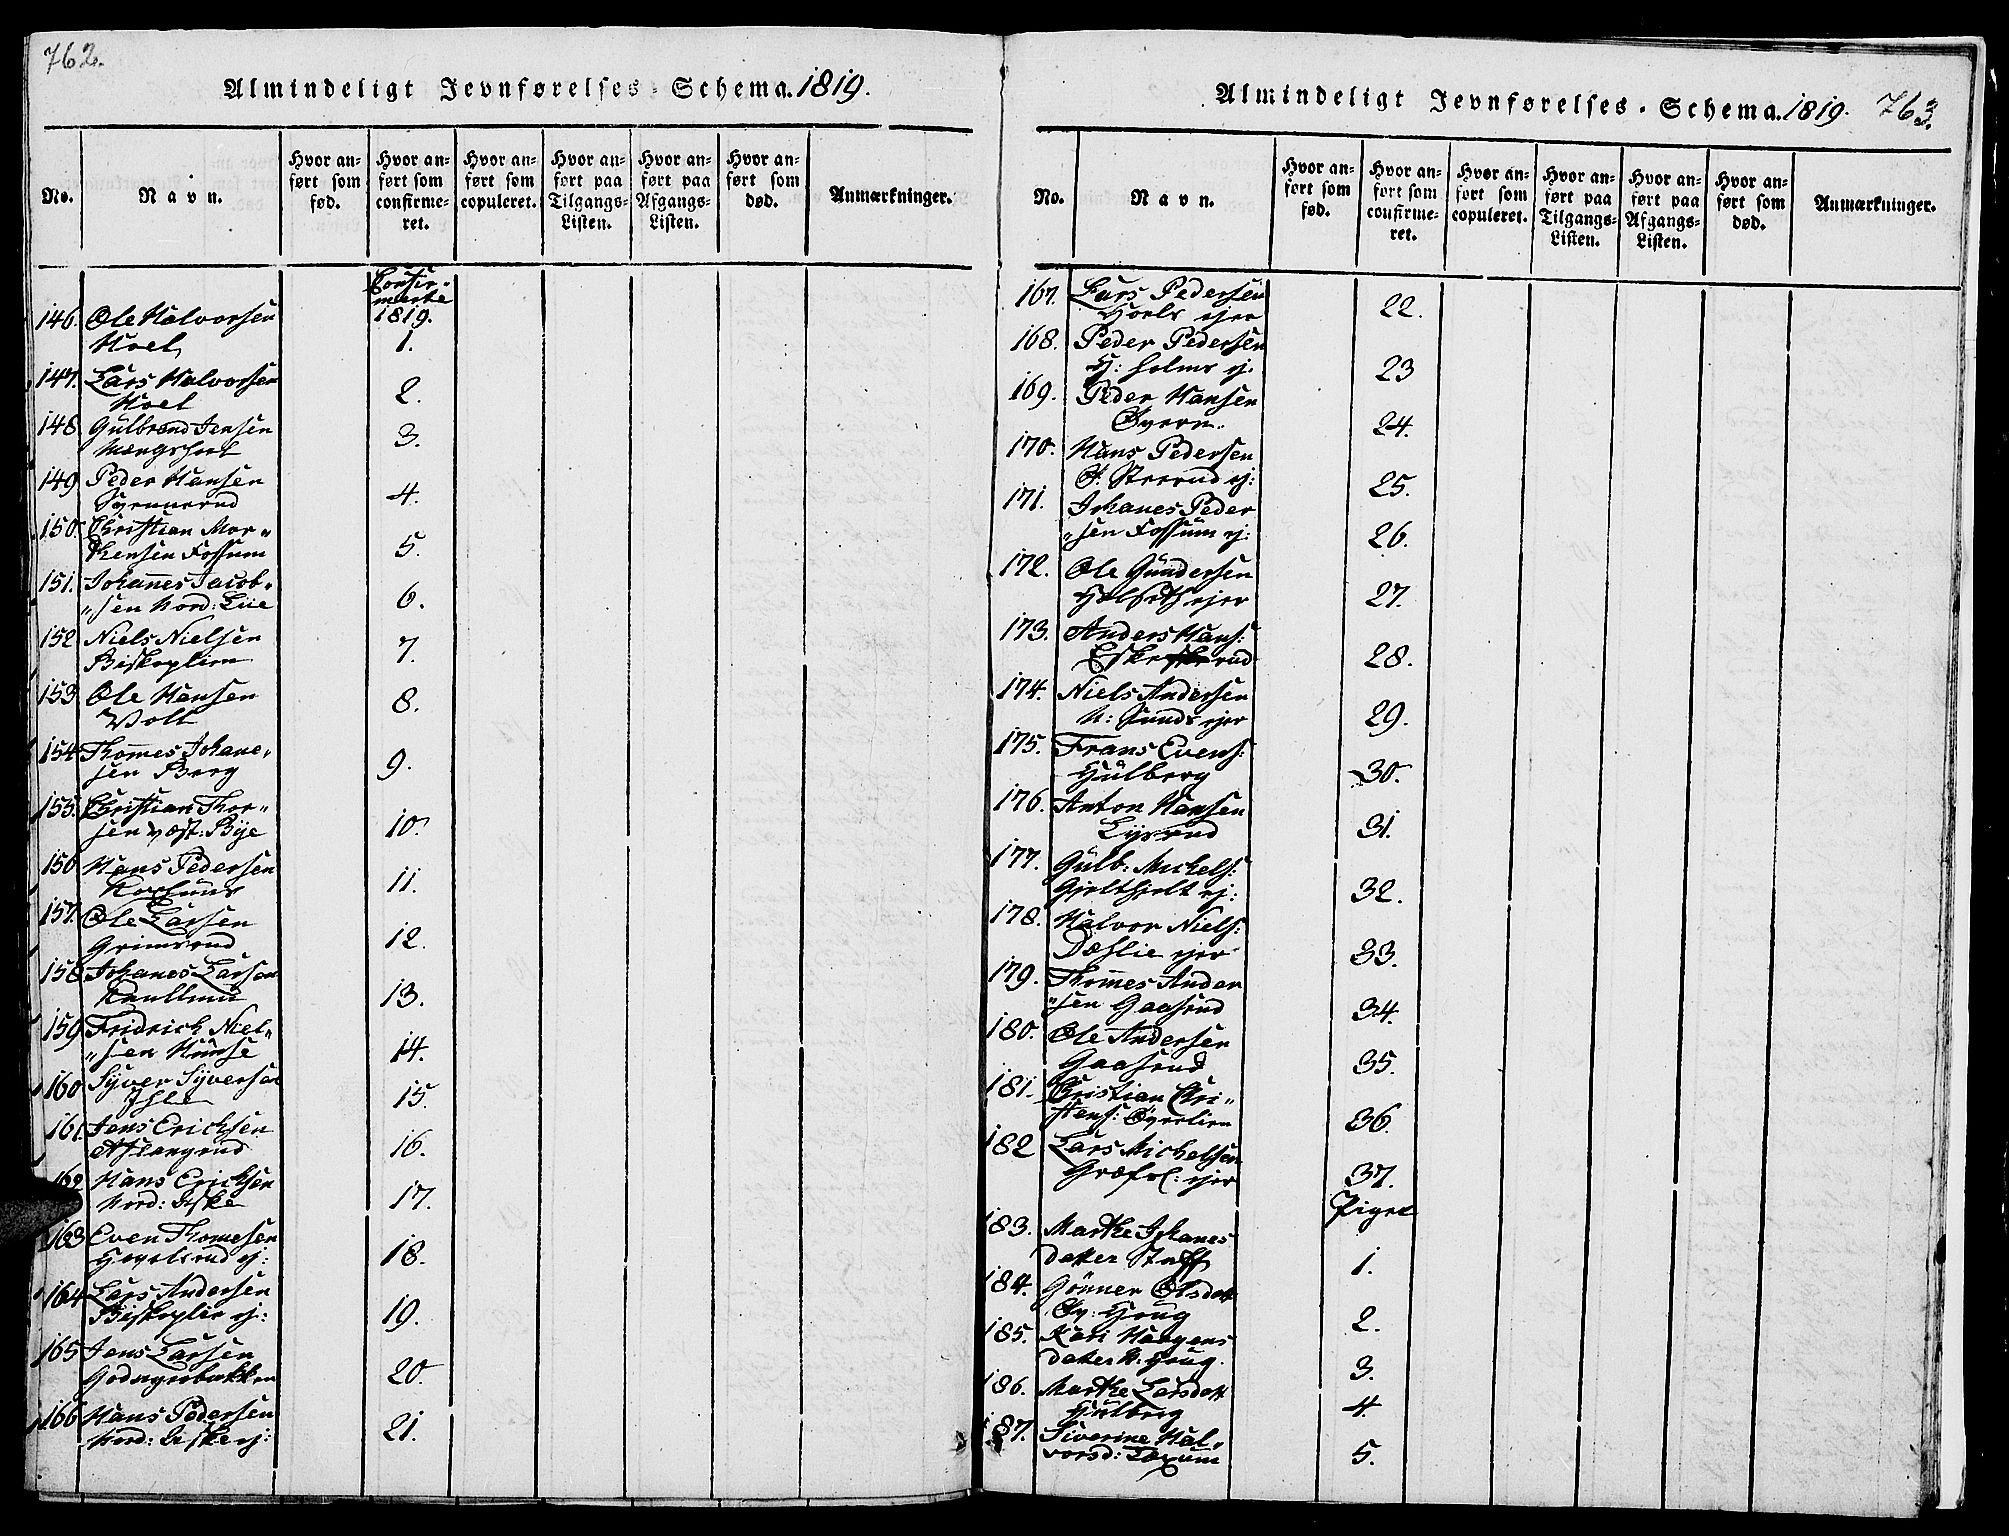 762.
Almindeligt Jevnførelses-Schema. 1819.
No.
Navn.
Hvor anført som fød.
Hvor anført som confirmeret.
Hvor anført som copuleret.
Hvor anført paa Tilgangs-Listen.
Hvor anført paa Afgangs-Listen.
Hvor anført som død.
Anmærkninger.
Confir-
merte
1819.
146. Ole Halvorsen
Hoel 1.
147. Lars Halvorsen
Hoel 2.
148. Gulbrand Jensen 3.
149 Peder Hansen
4.
150. Christian Mor„
thensen Fossum 5.
151. Johannes Jacob„
„sen Nord: Lüe 6.
152 Niels Nielsen
Biskoplien 7.
153 Ole Hansen
Volt 8.
154 Thomes Johane„
sen Berg 9.
155. Christian Thor„
sen væst: Bÿe 10.
156 Hans Pedersen
11.
157. Ole Larsen
Grimsrud 12.
158 Johanes Larsen
13.
159 Fridrich Niel„
„sen 14.
160 Sÿver Sÿversen
15.
161. Jens Erichsen
Aslangrud 16.
162 Hans Erichsen
Nord: Eske 17.
163 Even Thomesen
18.
164 Lars Andersen
Biskoplier ej: 19.
165 Jens Larsen
20.
166 Hans Pedersen
Nord: Eske ej: 21.
Almindeligt Jevnførelses-Schema. 1819. 763.
No.
Navn.
Hvor anført som fød.
Hvor anført som confirmeret.
Hvor anført som copuleret.
Hvor anført paa Tilgangs-Listen.
Hvor anført paa Afgangs-Listen.
Hvor anført som død.
Anmærkninger.
167. Lars Pedersen
Hoels ejer 22.
168. Peder Pedersen
H: holms ej. 23
169. Peder Hansen
Øvern. 24.
170. Hans Pedersen
25.
171. Johanes Peder
„sen Fossum ej: 26.
172. Ole Gündersen
ejer 27.
173. Anders Hans:
28.
174. Niels Andersen
N: Sunds ejer 29.
175. Frans Evens:
Hülberg 30.
176. Anton Hansen
Lysrud 31.
177. Gülb: Michels:
ej: 32.
178. Halvor Niels:
Dæhlie ejer 33.
179. Thomes Ander
„sen Gaasrud 34.
180. Ole Andersen
Gaasrud 35.
181. Christian Chri„
stens: Øverlien 36.
182 Lars Michelsen
ejer 37.
Piger
183. Marthe Johanes
datter 1.
184. Gönner Olsdatt
Øv: Houg 2.
185. Kari Haagens
datter N: Houg. 3.
186. Marthe Larsdatt
Hülberg 4.
187. Siverine Hal„
vorsd: 5.